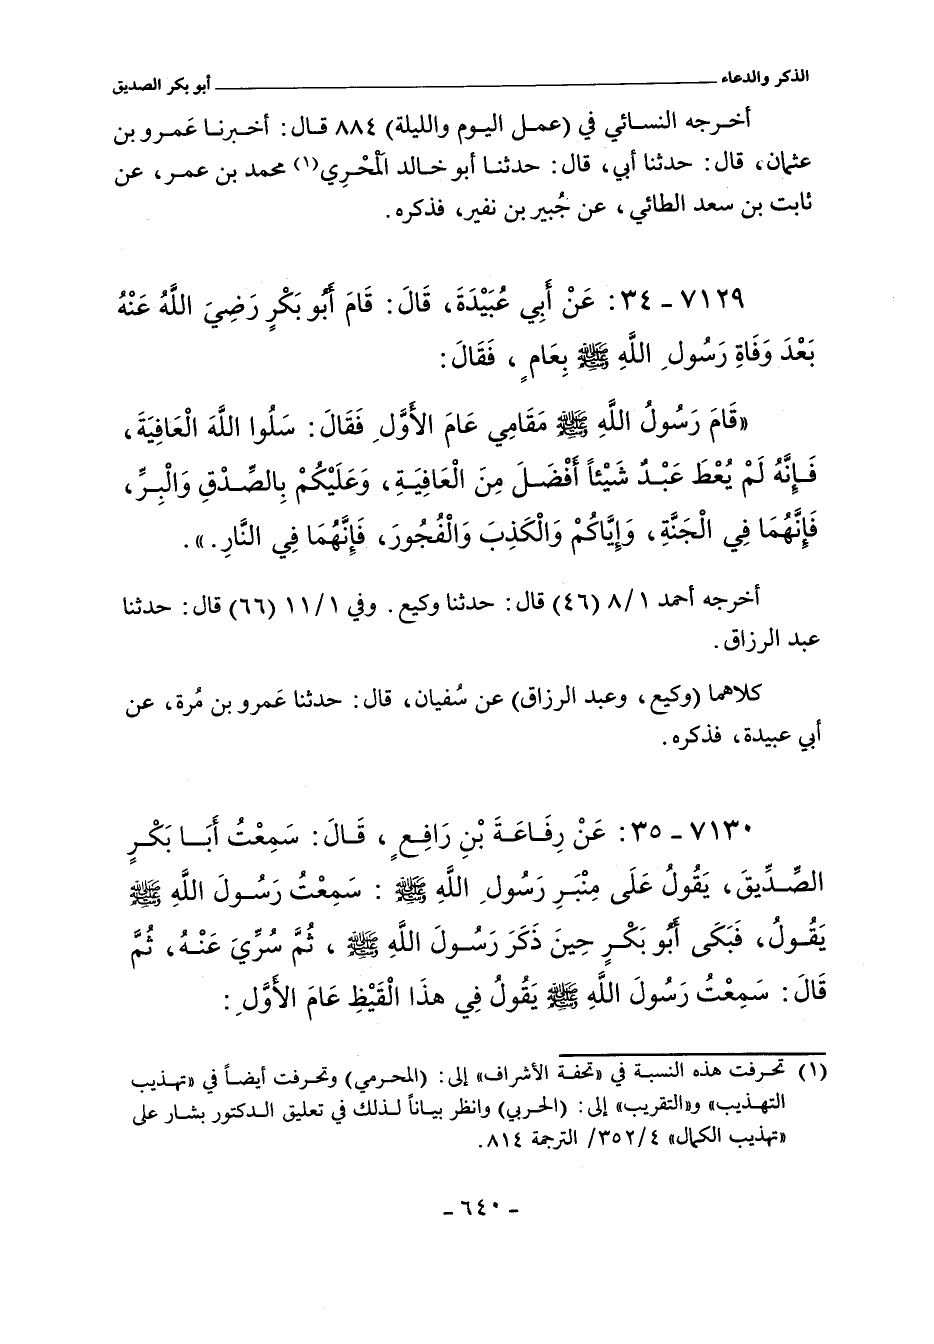 الذكر والدعاء ــــــــــــــــــــ أبو بكر الصديق
أخرجه النسائي في (عمل اليوم والليلة) ٨٨٤ قال: أخبرنا عَمرو بن
عثمان، قال: حدثنا أبي، قال: حدثنا أبو خالد الْمُحْرِي(١) محمد بن عمر، عن
ثابت بن سعد الطائي، عن جُبير بن نفير، فذكره.
٧١٢٩ - ٣٤: عَنْ أَبِي عُبَيْدَةَ، قَالَ: قَامَ أَبُو بَكْرٍ رَضِيَ اللَّهُ عَنْهُ
بَعْدَ وَفَاةِ رَسُولِ اللَّهِ ﷺ بِعَامٍ، فَقَالَ:
«قَامَ رَسُولُ اللَّهِ ﷺ مَقَامِي عَامَ الأَوَّلِ فَقَالَ: سَلُوا اللَّهَ الْعَافِيَةَ،
فَإِنَّهُ لَمْ يُعْطَ عَبْدٌ شَيْئاً أَفْضَلَ مِنَ الْعَافِيَةِ، وَعَلَيْكُمْ بِالصِّدْقِ وَالْبِرِّ،
فَإِنَّهُمَا فِي الْجَنَّةِ، وَإِيَّاكُمْ وَالْكَذِبَ وَالْفُجُورَ، فَإِنَّهُمَا فِي النَّارِ.».
أخرجه أحمد ٨/١ (٤٦) قال: حدثنا وكيع. وفي ١١/١ (٦٦) قال: حدثنا
عبد الرزاق.
كلاهما (وكيع، وعبد الرزاق) عن سُفيان، قال: حدثنا عَمرو بن مُرة، عن
أبي عبيدة، فذكره.
٧١٣٠ - ٣٥: عَنْ رِفَاعَةَ بْنِ رَافِعٍ، قَالَ: سَمِعْتُ أَبَا بَكْرٍ
الصِّدِّيقَ، يَقُولُ عَلَى مِنْبَرِ رَسُولِ اللَّهِ ﷺ: سَمِعْتُ رَسُولَ اللَّهِ ﷺ
يَقُولُ، فَبَكَى أَبُو بَكْرٍ حِينَ ذَكَرَ رَسُولَ اللَّهِ ﷺ، ثُمَّ سُرِّيَ عَنْهُ، ثُمَّ
قَالَ: سَمِعْتُ رَسُولَ اللَّهِ ﷺ يَقُولُ فِي هذَا الْقَيْظِ عَامَ الأَوَّلِ:
(١) تحرفت هذه النسبة في «تحفة الأشراف» إلى: (المحرمي) وتحرفت أيضاً في «تهذيب
التهذيب» و«التقريب» إلى: (الحربي) وانظر بياناً لذلك في تعليق الدكتور بشار على
«تهذيب الكمال» ٣٥٢/٤/ الترجمة ٨١٤.
- ٦٤٠ -